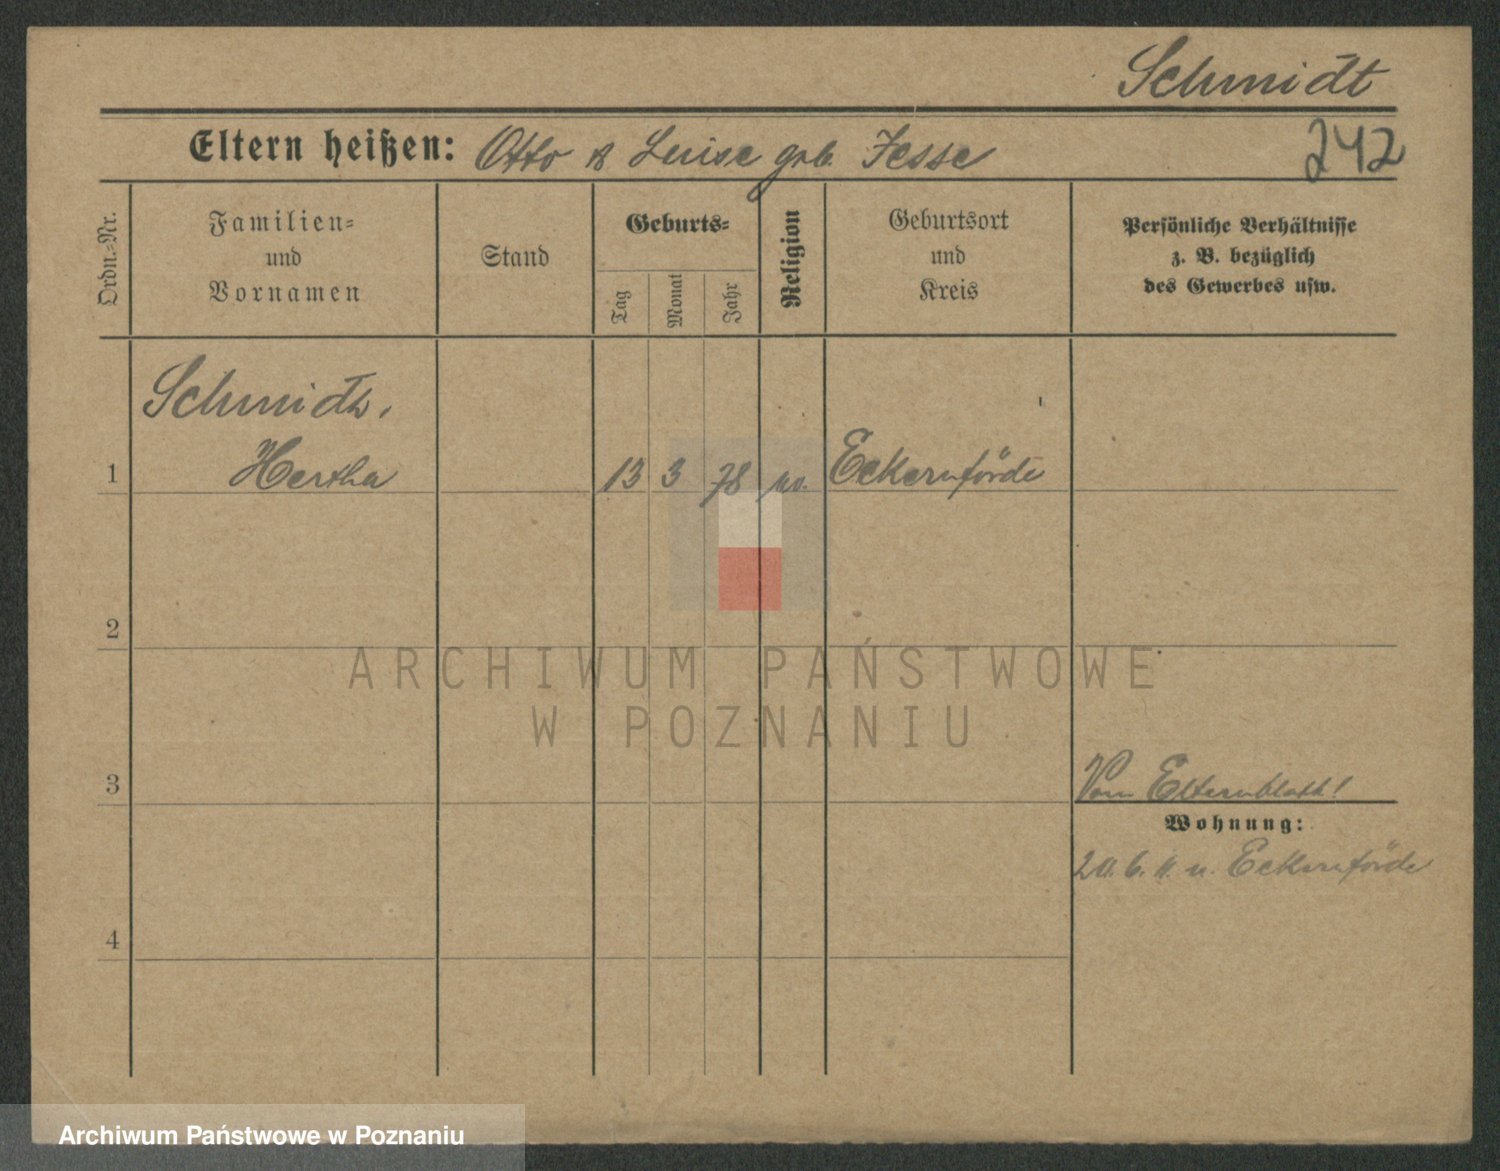 Schmidt
Eltern heißen: Otto & Luise geb. Jesse
242
Ordn.-Nr.
Familien-
und
Vornamen
Stand
Geburts-
Tag
Monat
Jahr
Religion
Geburtsort
und
Kreis
Persönliche Verhältnisse
z. B. bezüglich
des Gewerbes usw.
Schmidt,
1 Hertha 13 3 78 Eckernförde
2
ARCHIWUM PAŃSTWOWE
W POZNANIU
3 Vom Elternblatt!
Wohnung:
20. 6. 11. n. Eckernförde
4
Archiwum Państwowe w Poznaniu